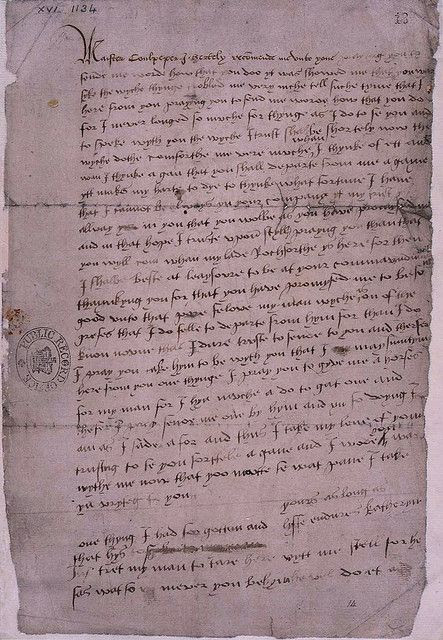 XVI. 1134
Master Coulpeper I hertely recomende me unto youe praying you to
sende me worde how that you doo yt was showed me that you was
sike the wyche thynge trobled me very muche tell suche tyme that I
here from you praying you to send me worde how that you do
for I never longed so muche for thynge as I do to se you and
to speke wyth you the wyche I trust shalbe shortely now the
wyche dothe comforthe me verie muche whan I thynke of ett and
wan I thynke agan that you shall departe from me agane
ytt makes my harte to dye to thynke what fortune I have
that I cannot be always yn your company yt my trust ys
allway in you that you wolbe as you have promysed me
and in that hope I truste upon styll praying you than that
you wyll com whan my lade Rochforthe ys here for then
I shalbe beste at leaysoure to be at your commaundmant
thankyng you for that you have promysed me to be so
good unto that pore felowe my man wyche on of the
grefes that I do felle to departe from hym for than I do
know noone that I dare truste to sende to you and therfor
I pray you take hym to be wyth you that I may sumtym
here from you one thynge I pray you to gyve me a horse
for my man for I hyd muche a do to gat one and
therfor I pray sende me one by hym and yn so doying I
am as I sade afor and thus I take my leve of you
trusting to se you shorttele agane and I wode you was
wythe me now that you maitte se wat pane I take
yn wryteg to you
yours as long as
lyffe endures Katheryn
one thyng I had forgotten and
that hys to my man to tare here wytt me still for he
sas wat so ever you hym he wel do et
14
PUBLIC RECORD OFFICE